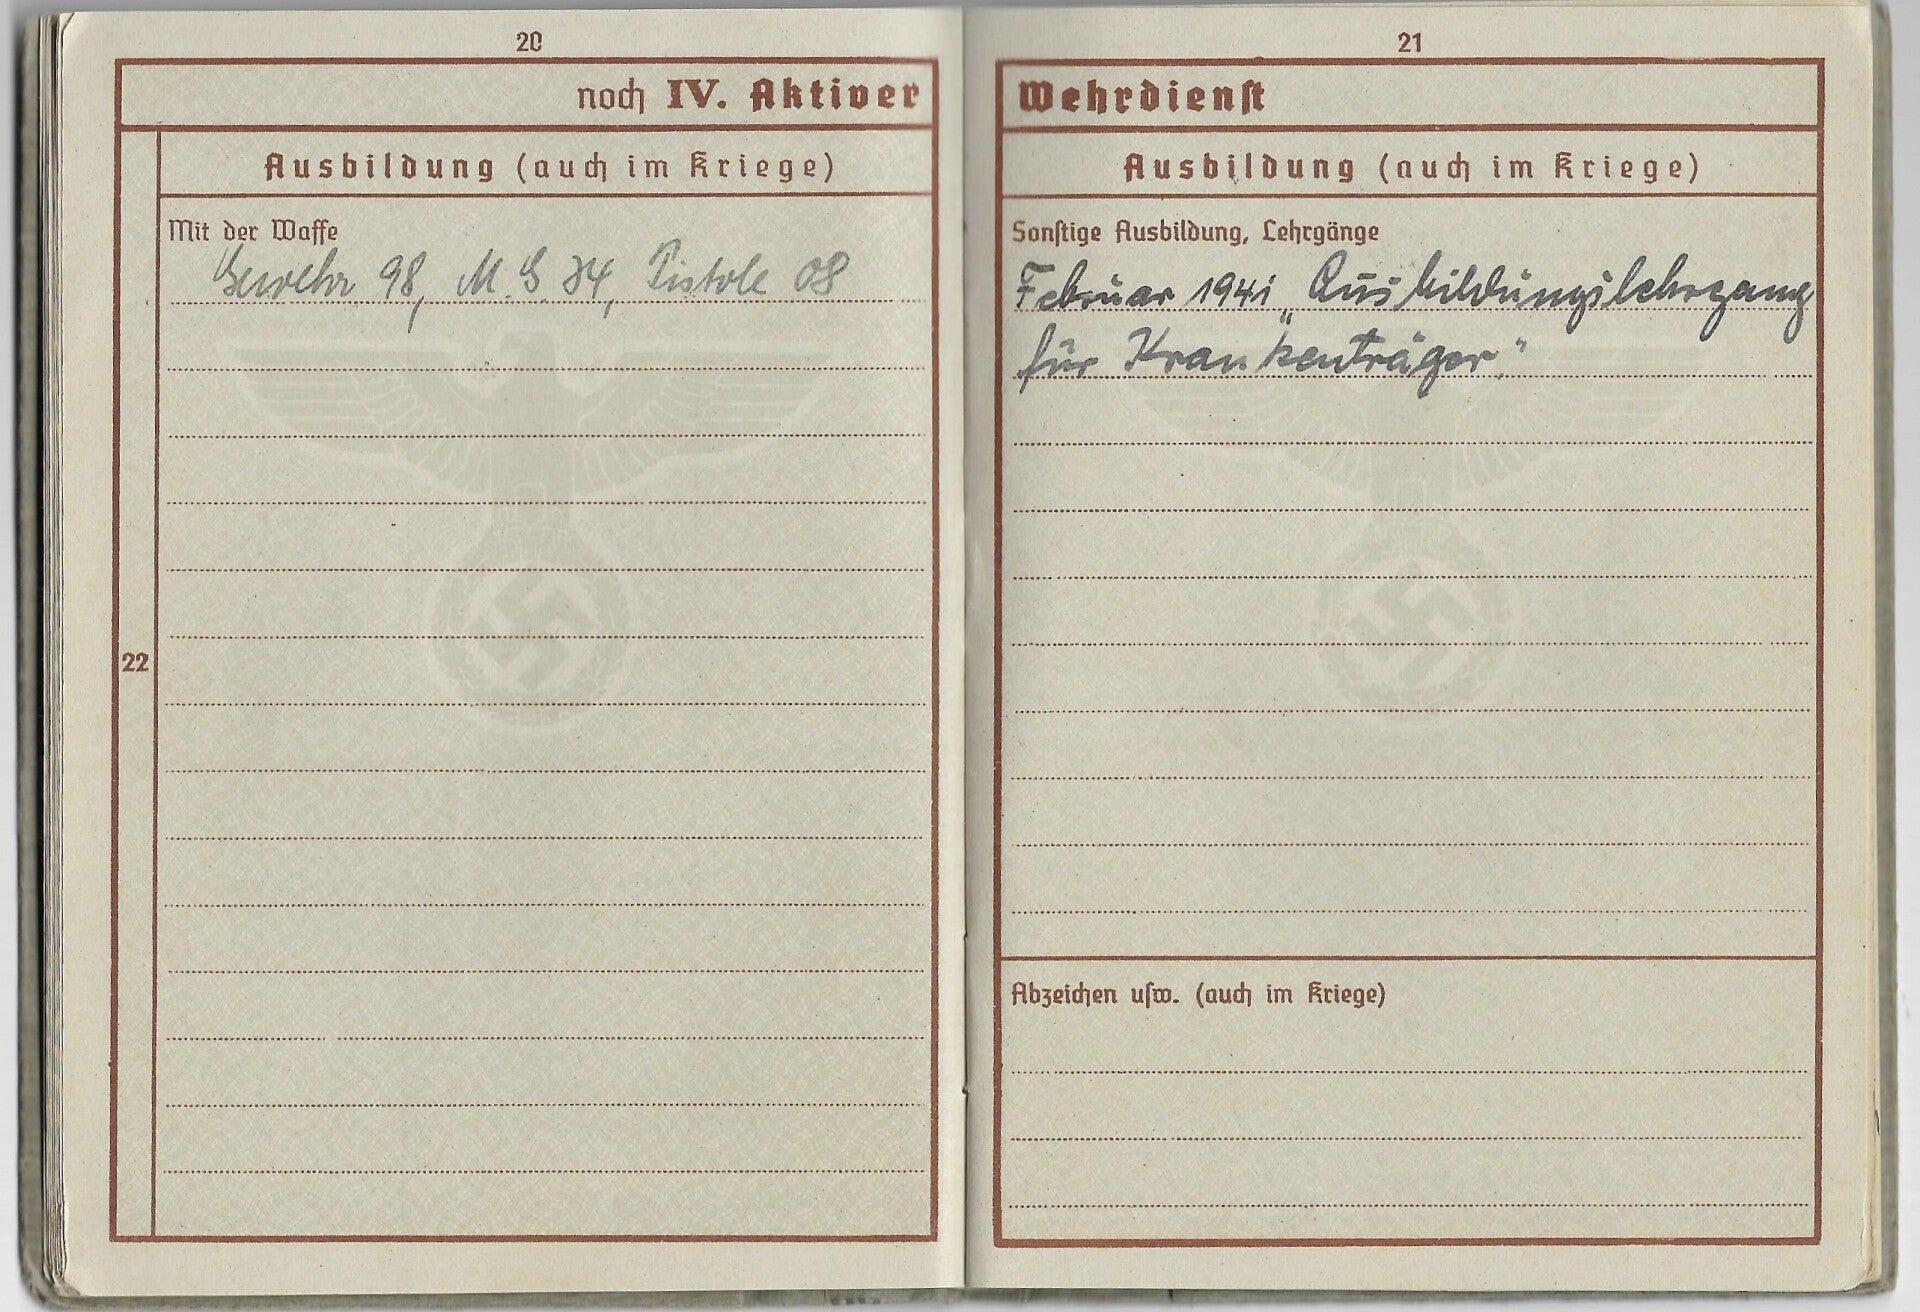 20
noch IV. Aktiver
Ausbildung (auch im Kriege)
Mit der Waffe
Gewehr 98, M.G 34, Pistole 08
22
21
Wehrdienst
Ausbildung (auch im Kriege)
Sonstige Ausbildung, Lehrgänge
Februar 1941 „Ausbildungslehrgang
für Krankenträger."
Abzeichen usw. (auch im Kriege)